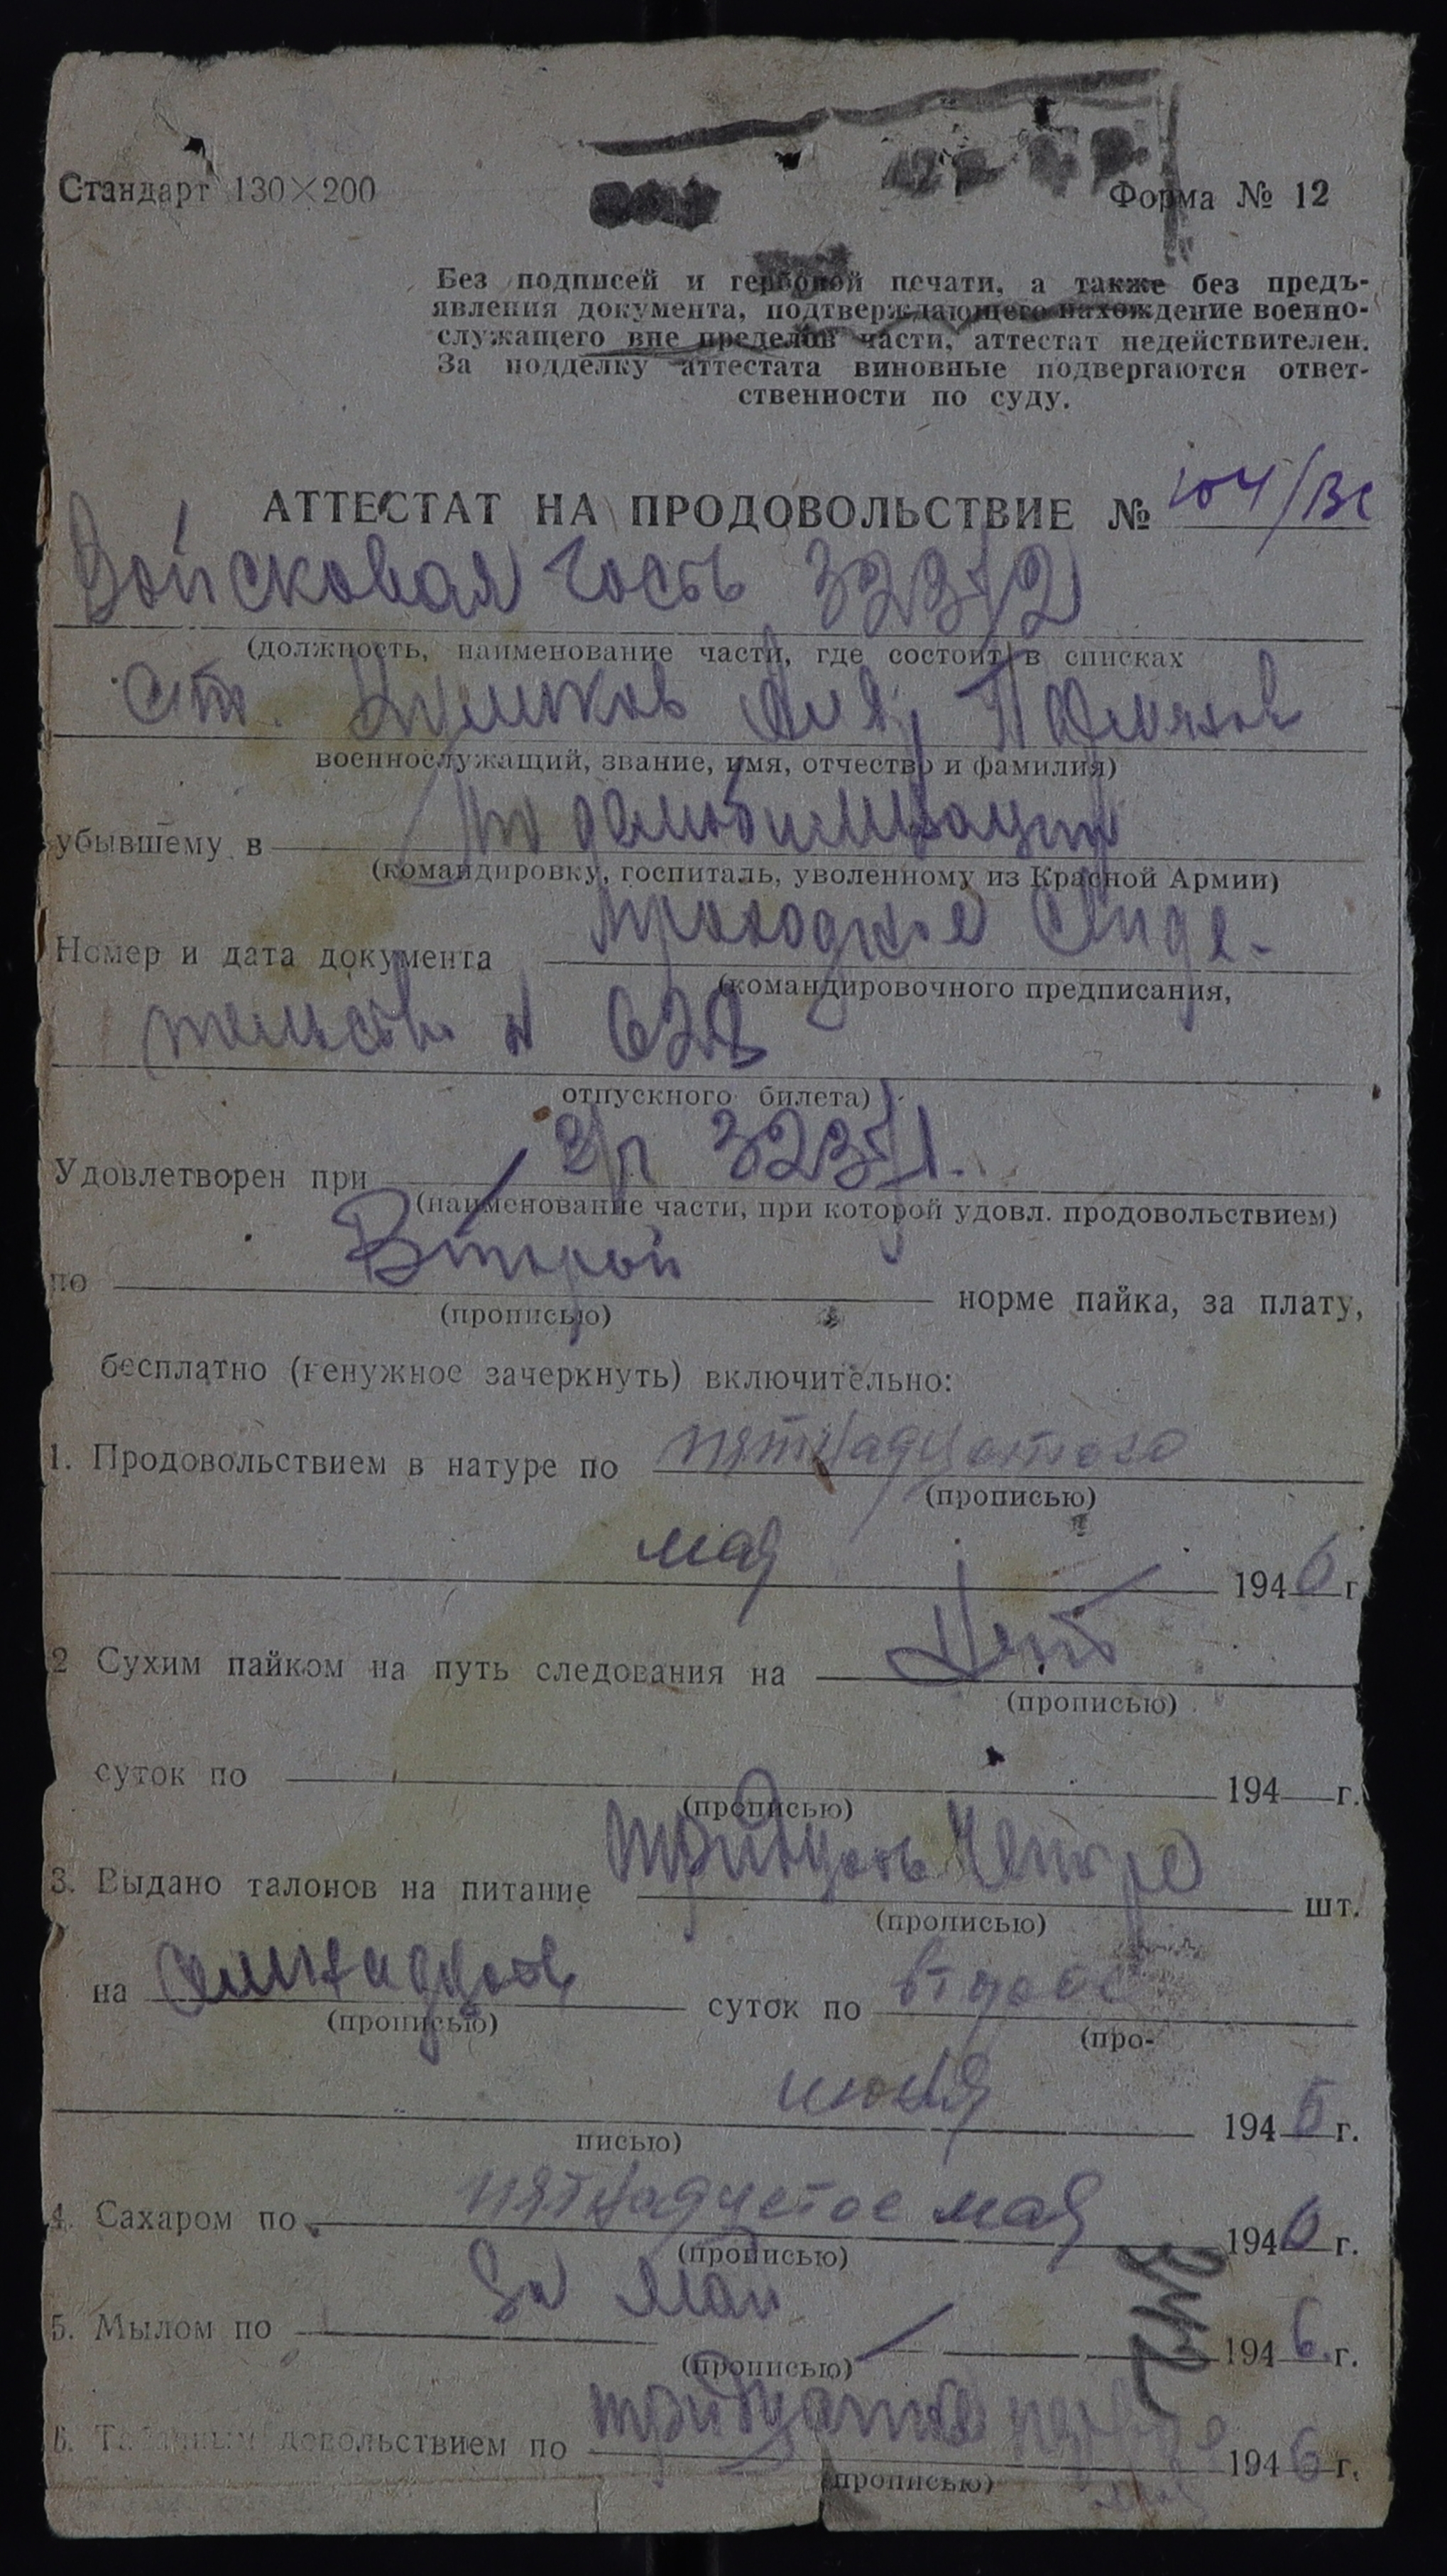 Стандарт 130×200
Форма № 12
Без подписей и гербовой печати, а также без предъ-
явления документа, подтверждающего нахождение военно-
служащего вне пределов части, аттестат недействителен.
За подделку аттестата виновные подвергаются ответ-
ственности по суду.
АТТЕСТАТ НА ПРОДОВОЛЬСТВИЕ № 104/ВС
Войсковая часть
(должность, наименование части, где состоит в списках
военнослужащий, звание, имя, отчество и фамилия)
убывшему в По демобилизации
(командировку, госпиталь, уволенному из Красной Армии)
Номер и дата документа проходное свиде-
(командировочного предписания,
тельство №
отпускного билета)
Удовлетворен при
(наименование части, при которой удовл. продовольствием)
по Второй норме пайка, за плату,
(прописью)
бесплатно (ненужное зачеркнуть) включительно:
1. Продовольствием в натуре по пятнадцатого
(прописью)
мая 1946 г.
2 Сухим пайком на путь следования на Нет
(прописью)
суток по 194 г.
(прописью)
3. Выдано талонов на питание тридцать четыре шт.
(прописью)
на семнадцать суток по второе
(прописью) (про-
июня 194 г.
писью)
4. Сахаром по пятнадцатое мая 1946 г.
(прописью)
5. Мылом по За май 1946 г.
(прописью)
6. Табачным довольствием по тридцать 1946 г.
(прописью)
мая